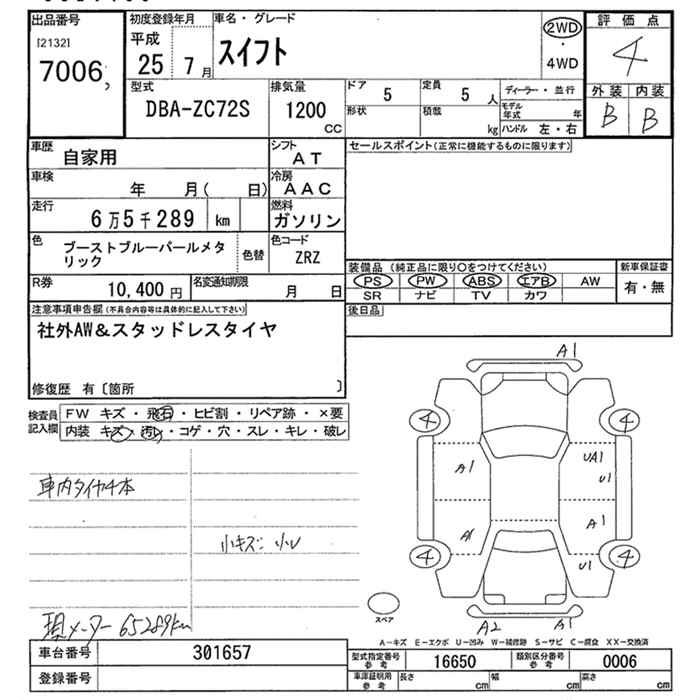 出品番号 初度登録年月 車名・グレード 2WD 評価点
[2132] 平成 スイフト ・ 4
7006 25 7月 4WD
型式 排気量 ドア 5 定員 5 人 ディーラー・並行 外装 内装
DBA-ZC72S 1200 CC 形状 積載 kg モデル年式 年 B B
ハンドル 左・右
車歴 自家用 シフト AT セールスポイント(正常に機能するものに限ります)
車検 年 月( 日) 冷房 AAC
走行 6万5千289 km 燃料 ガソリン
色 ブーストブルーパールメタリック 色替 色コード ZRZ
装備品 (純正品に限り○をつけてください) 新車保証書
PS PW ABS エアB AW 有・無
SR ナビ TV カワ
R券 10,400円 名変通知期限 月 日
後日品
注意事項申告欄(不具合内容等は具体的に記入して下さい)
社外AW&スタッドレスタイヤ
修復歴 有〔箇所 〕
検査員記入欄 FW キズ・飛石・ヒビ割・リペア跡・×要
内装 キズ・汚れ・コゲ・穴・スレ・キレ・破レ
A1
4 4
A1 UA1
U1
車内タイヤ4本
A1 A1
小キズ:小U
4 4
U1
スペア
A2 A1
現メーター 65289km
A-キズ E-エクボ U-凹み W-補修跡 S-サビ C-腐食 XX-交換済
車台番号 301657 型式指定番号 参考 16650 類別区分番号 参考 0006
登録番号 車庫証明用 参考 長さ cm 幅 cm 高さ cm